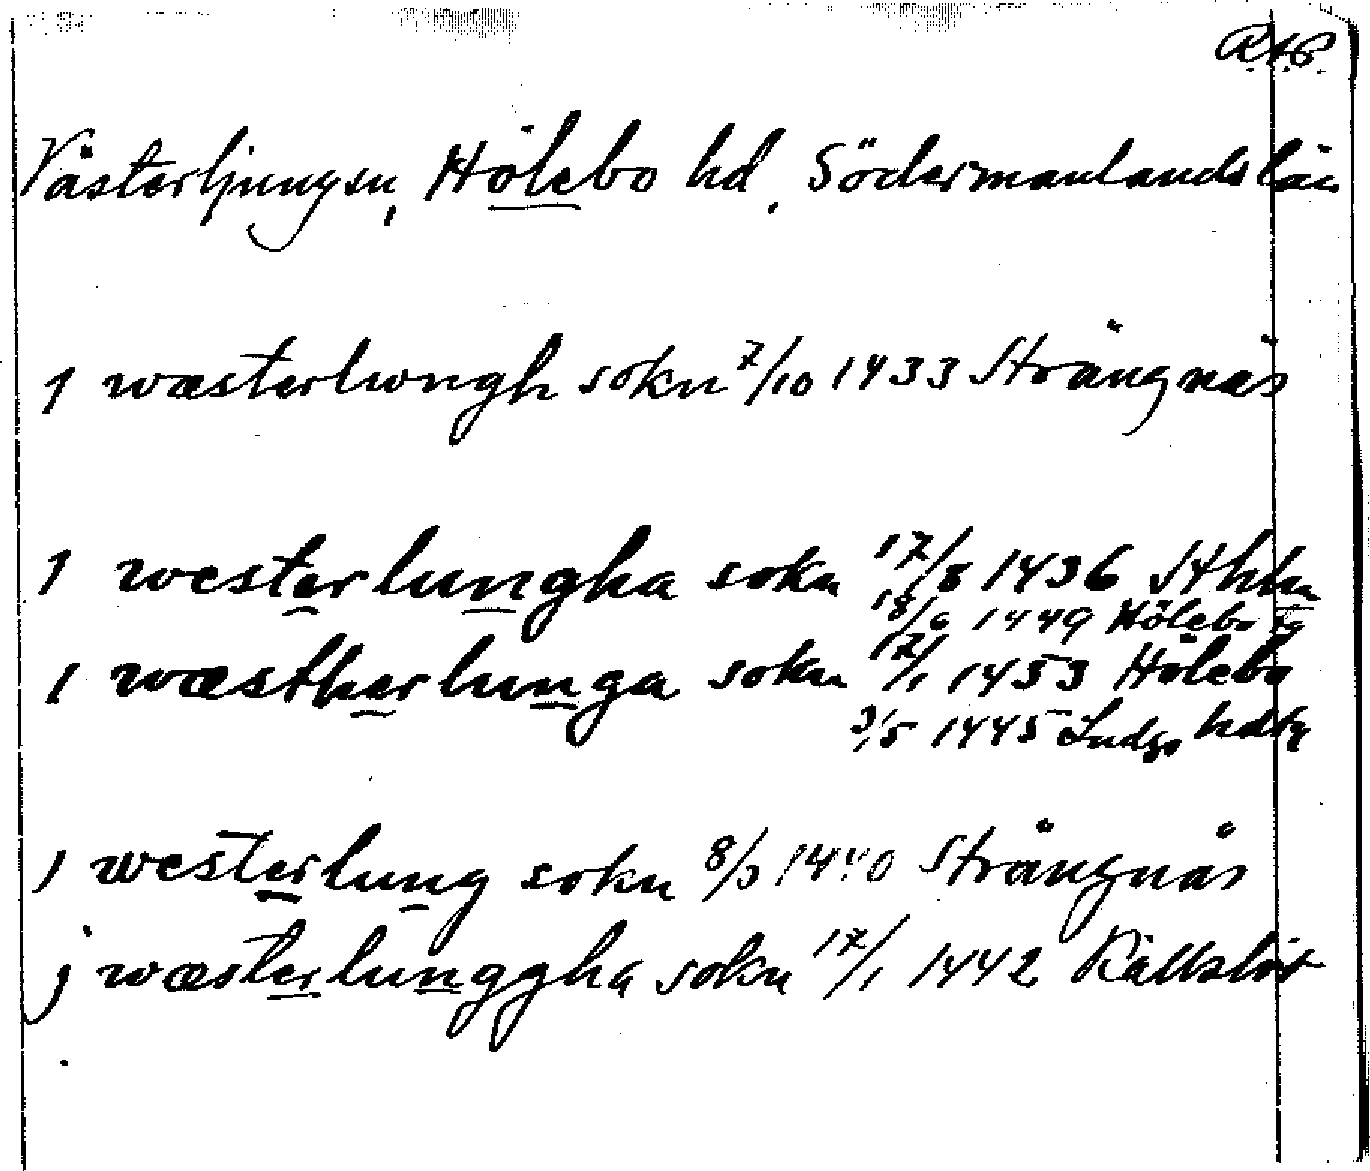 R.A.P.
Västerljungsn, Hölebo hd, Södermanlands län
I wæsterliungh sokn 7/10 1433 Strängnäs
I westerlungha sokn 17/8 1436 Sthlm
18/6 1449 Hölebo tg
I wæstherlunga sokn 17/1 1453 Hölebo
3/5 1445 Ludgo hdtg
I westerlung sokn 8/3 1440 Strängnäs
j wæsterlunggha sokn 17/1 1442